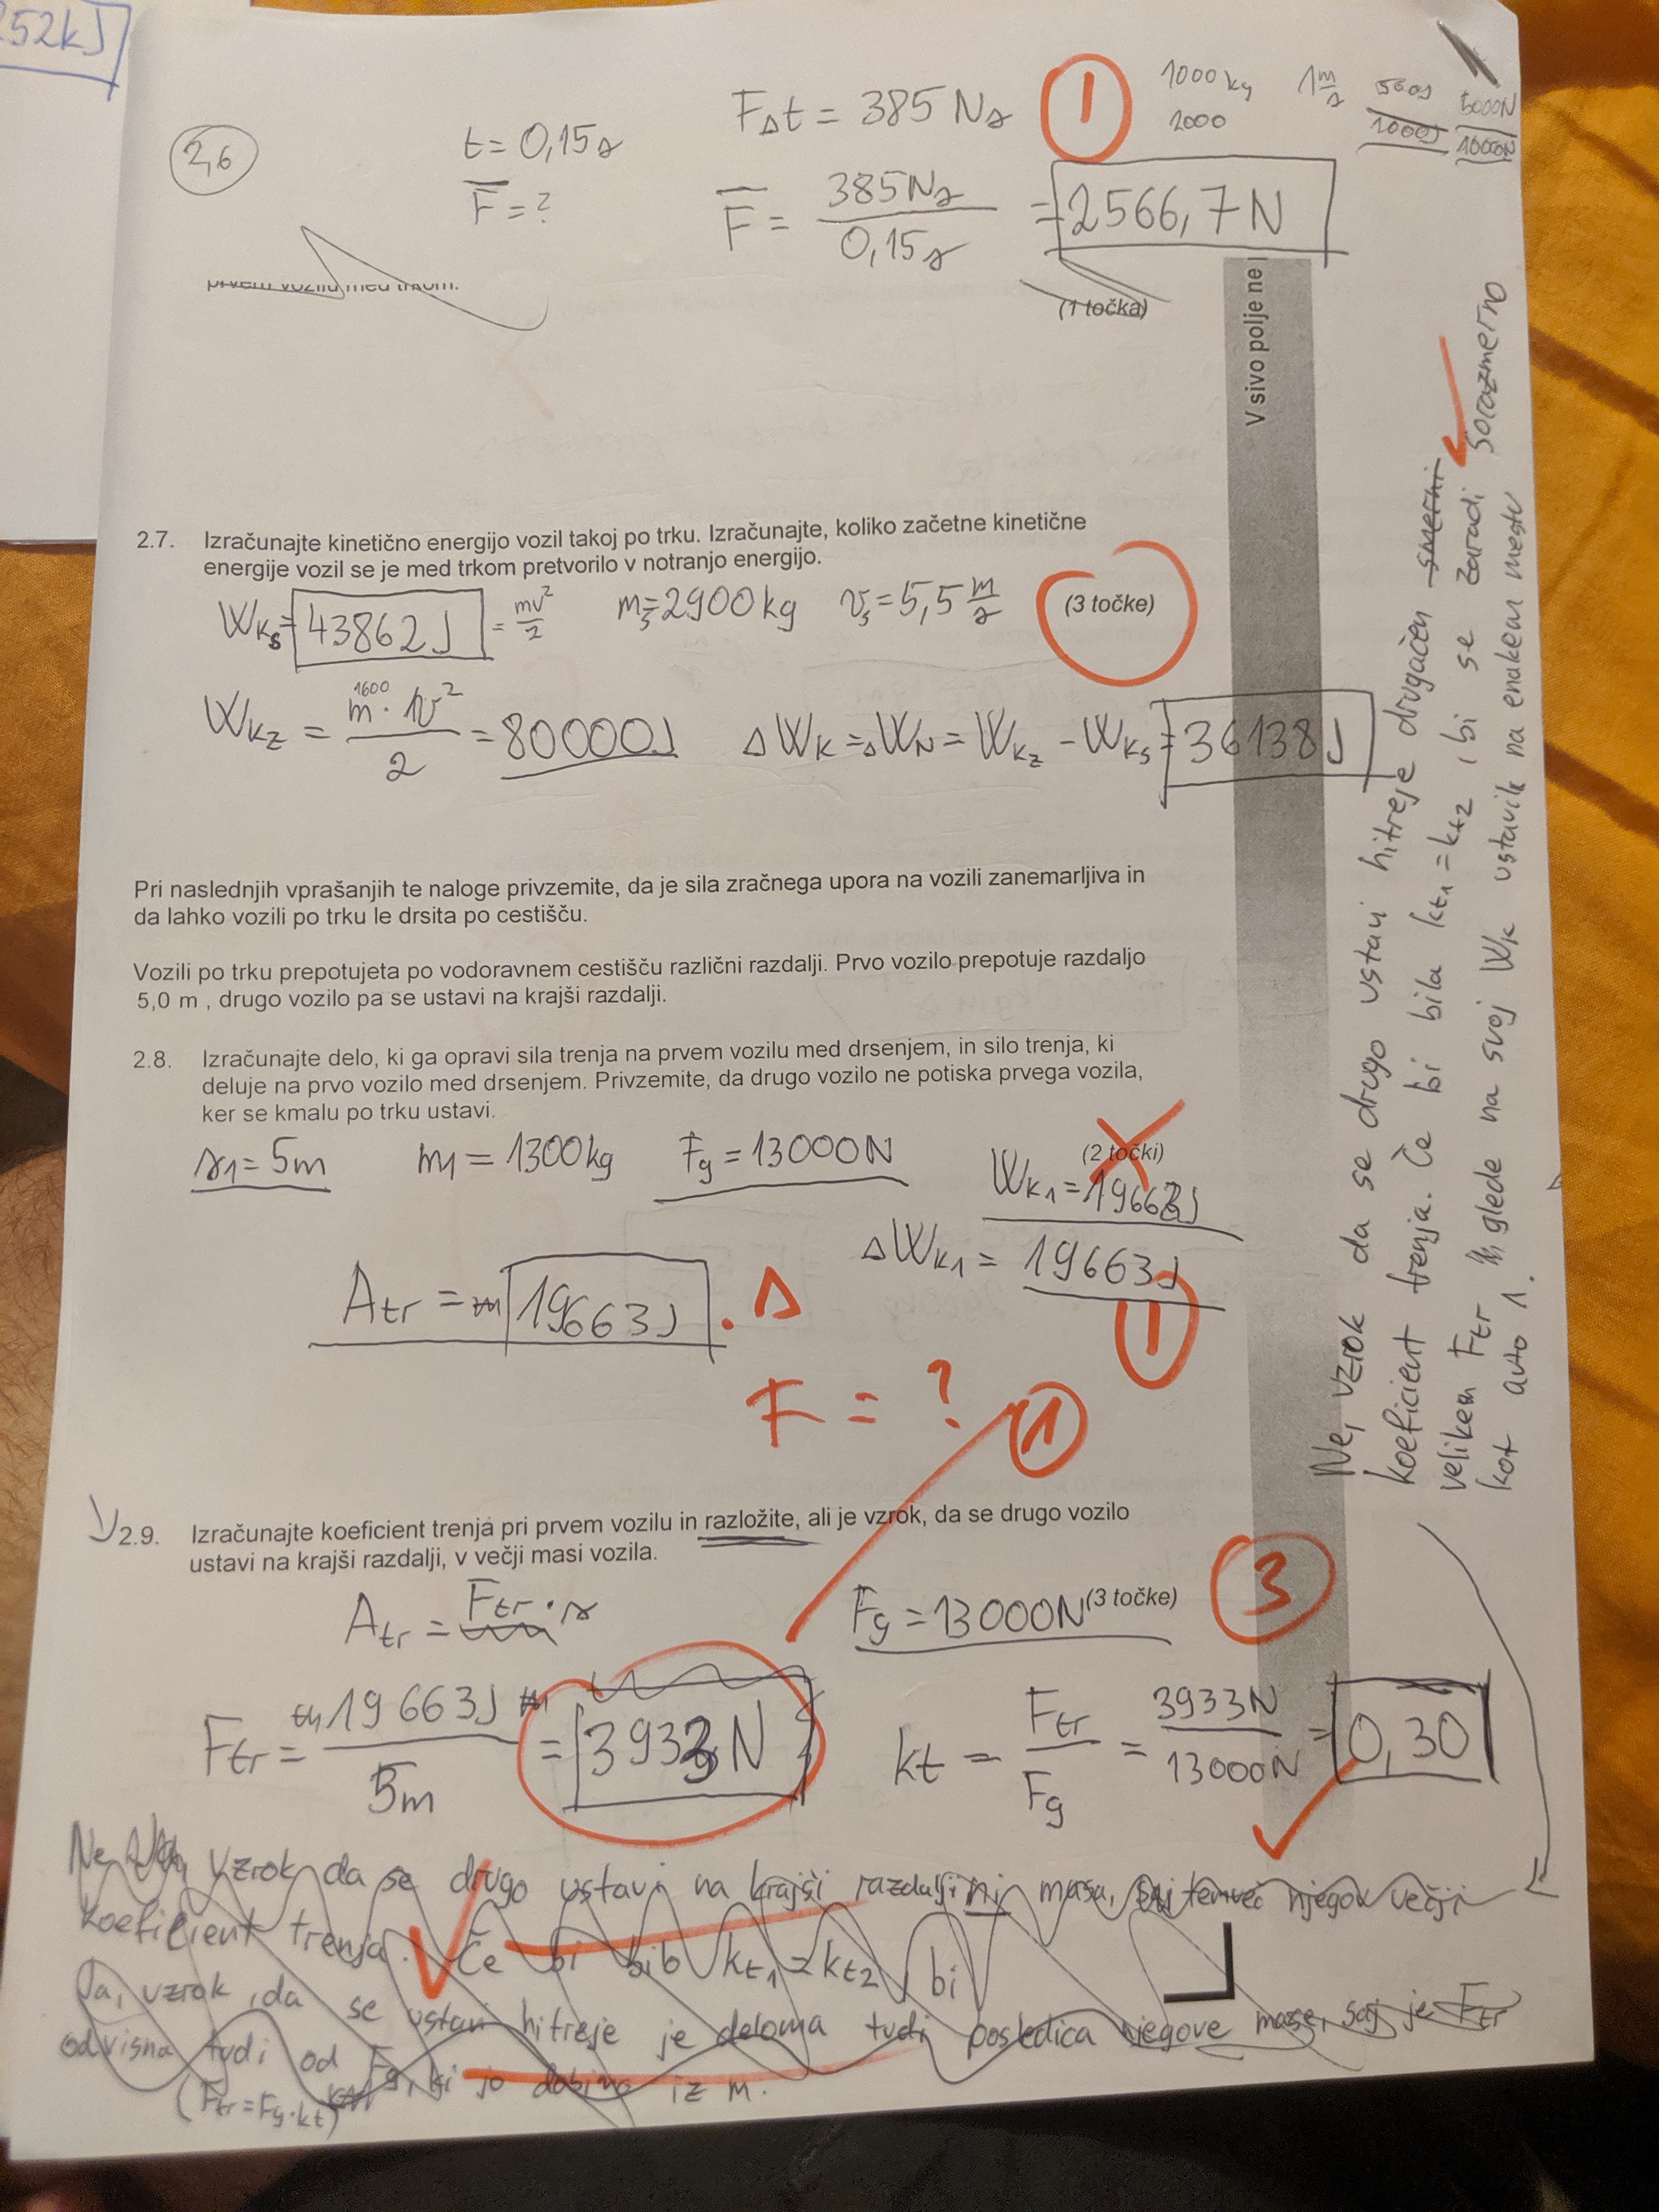 52kJ
1
1000 kg 1 m/s 500J 5000N
2000 1000J 10000N
2,6
t = 0,15 s
F = ?
FΔt = 385 Ns
1
F = 385Ns / 0,15s = 2566,7 N
prvem vozilu med trkom.
(1 točka)
V sivo polje ne
2.7. Izračunajte kinetično energijo vozil takoj po trku. Izračunajte, koliko začetne kinetične
energije vozil se je med trkom pretvorilo v notranjo energijo.
(3 točke)
Wks = 43862J = mv²/2 ms = 2900 kg vs = 5,5 m/s
Wkz = m · v² / 2 = 80000J
1600
ΔWk = ΔWN = Wkz - Wks = 36138J
Pri naslednjih vprašanjih te naloge privzemite, da je sila zračnega upora na vozili zanemarljiva in
da lahko vozili po trku le drsita po cestišču.
Vozili po trku prepotujeta po vodoravnem cestišču različni razdalji. Prvo vozilo prepotuje razdaljo
5,0 m , drugo vozilo pa se ustavi na krajši razdalji.
2.8. Izračunajte delo, ki ga opravi sila trenja na prvem vozilu med drsenjem, in silo trenja, ki
deluje na prvo vozilo med drsenjem. Privzemite, da drugo vozilo ne potiska prvega vozila,
ker se kmalu po trku ustavi.
(2 točki)
s1 = 5m m1 = 1300kg Fg = 13000N
Wk1 = 19663J
ΔWk1 = 19663J
Atr = 19663J
1
F = ?
1
2.9. Izračunajte koeficient trenja pri prvem vozilu in razložite, ali je vzrok, da se drugo vozilo
ustavi na krajši razdalji, v večji masi vozila.
(3 točke)
3
Atr = Ftr · s
Fg = 13000N
Ftr = 19663J / 5m = 3933N
kt = Ftr / Fg = 3933N / 13000N = 0,30
Ne, vzrok da se drugo ustavi na krajši razdalji ni masa, temveč njegov večji
koeficient trenja. Če bi bilo kt1 = kt2, bi
Ja, vzrok, da se ustavi hitreje je deloma tudi posledica njegove mase, saj je Ftr
odvisna tudi od Fg, ki jo dobimo iz m.
(Ftr = Fg·kt)
Ne, vzrok da se drugo ustavi hitreje drugačen
koeficient trenja. Če bi bila kt1 = kt2, bi se zaradi sorazmerno
velikem Ftr glede na svoj Wk ustavila na enakem mestu
kot auto 1.